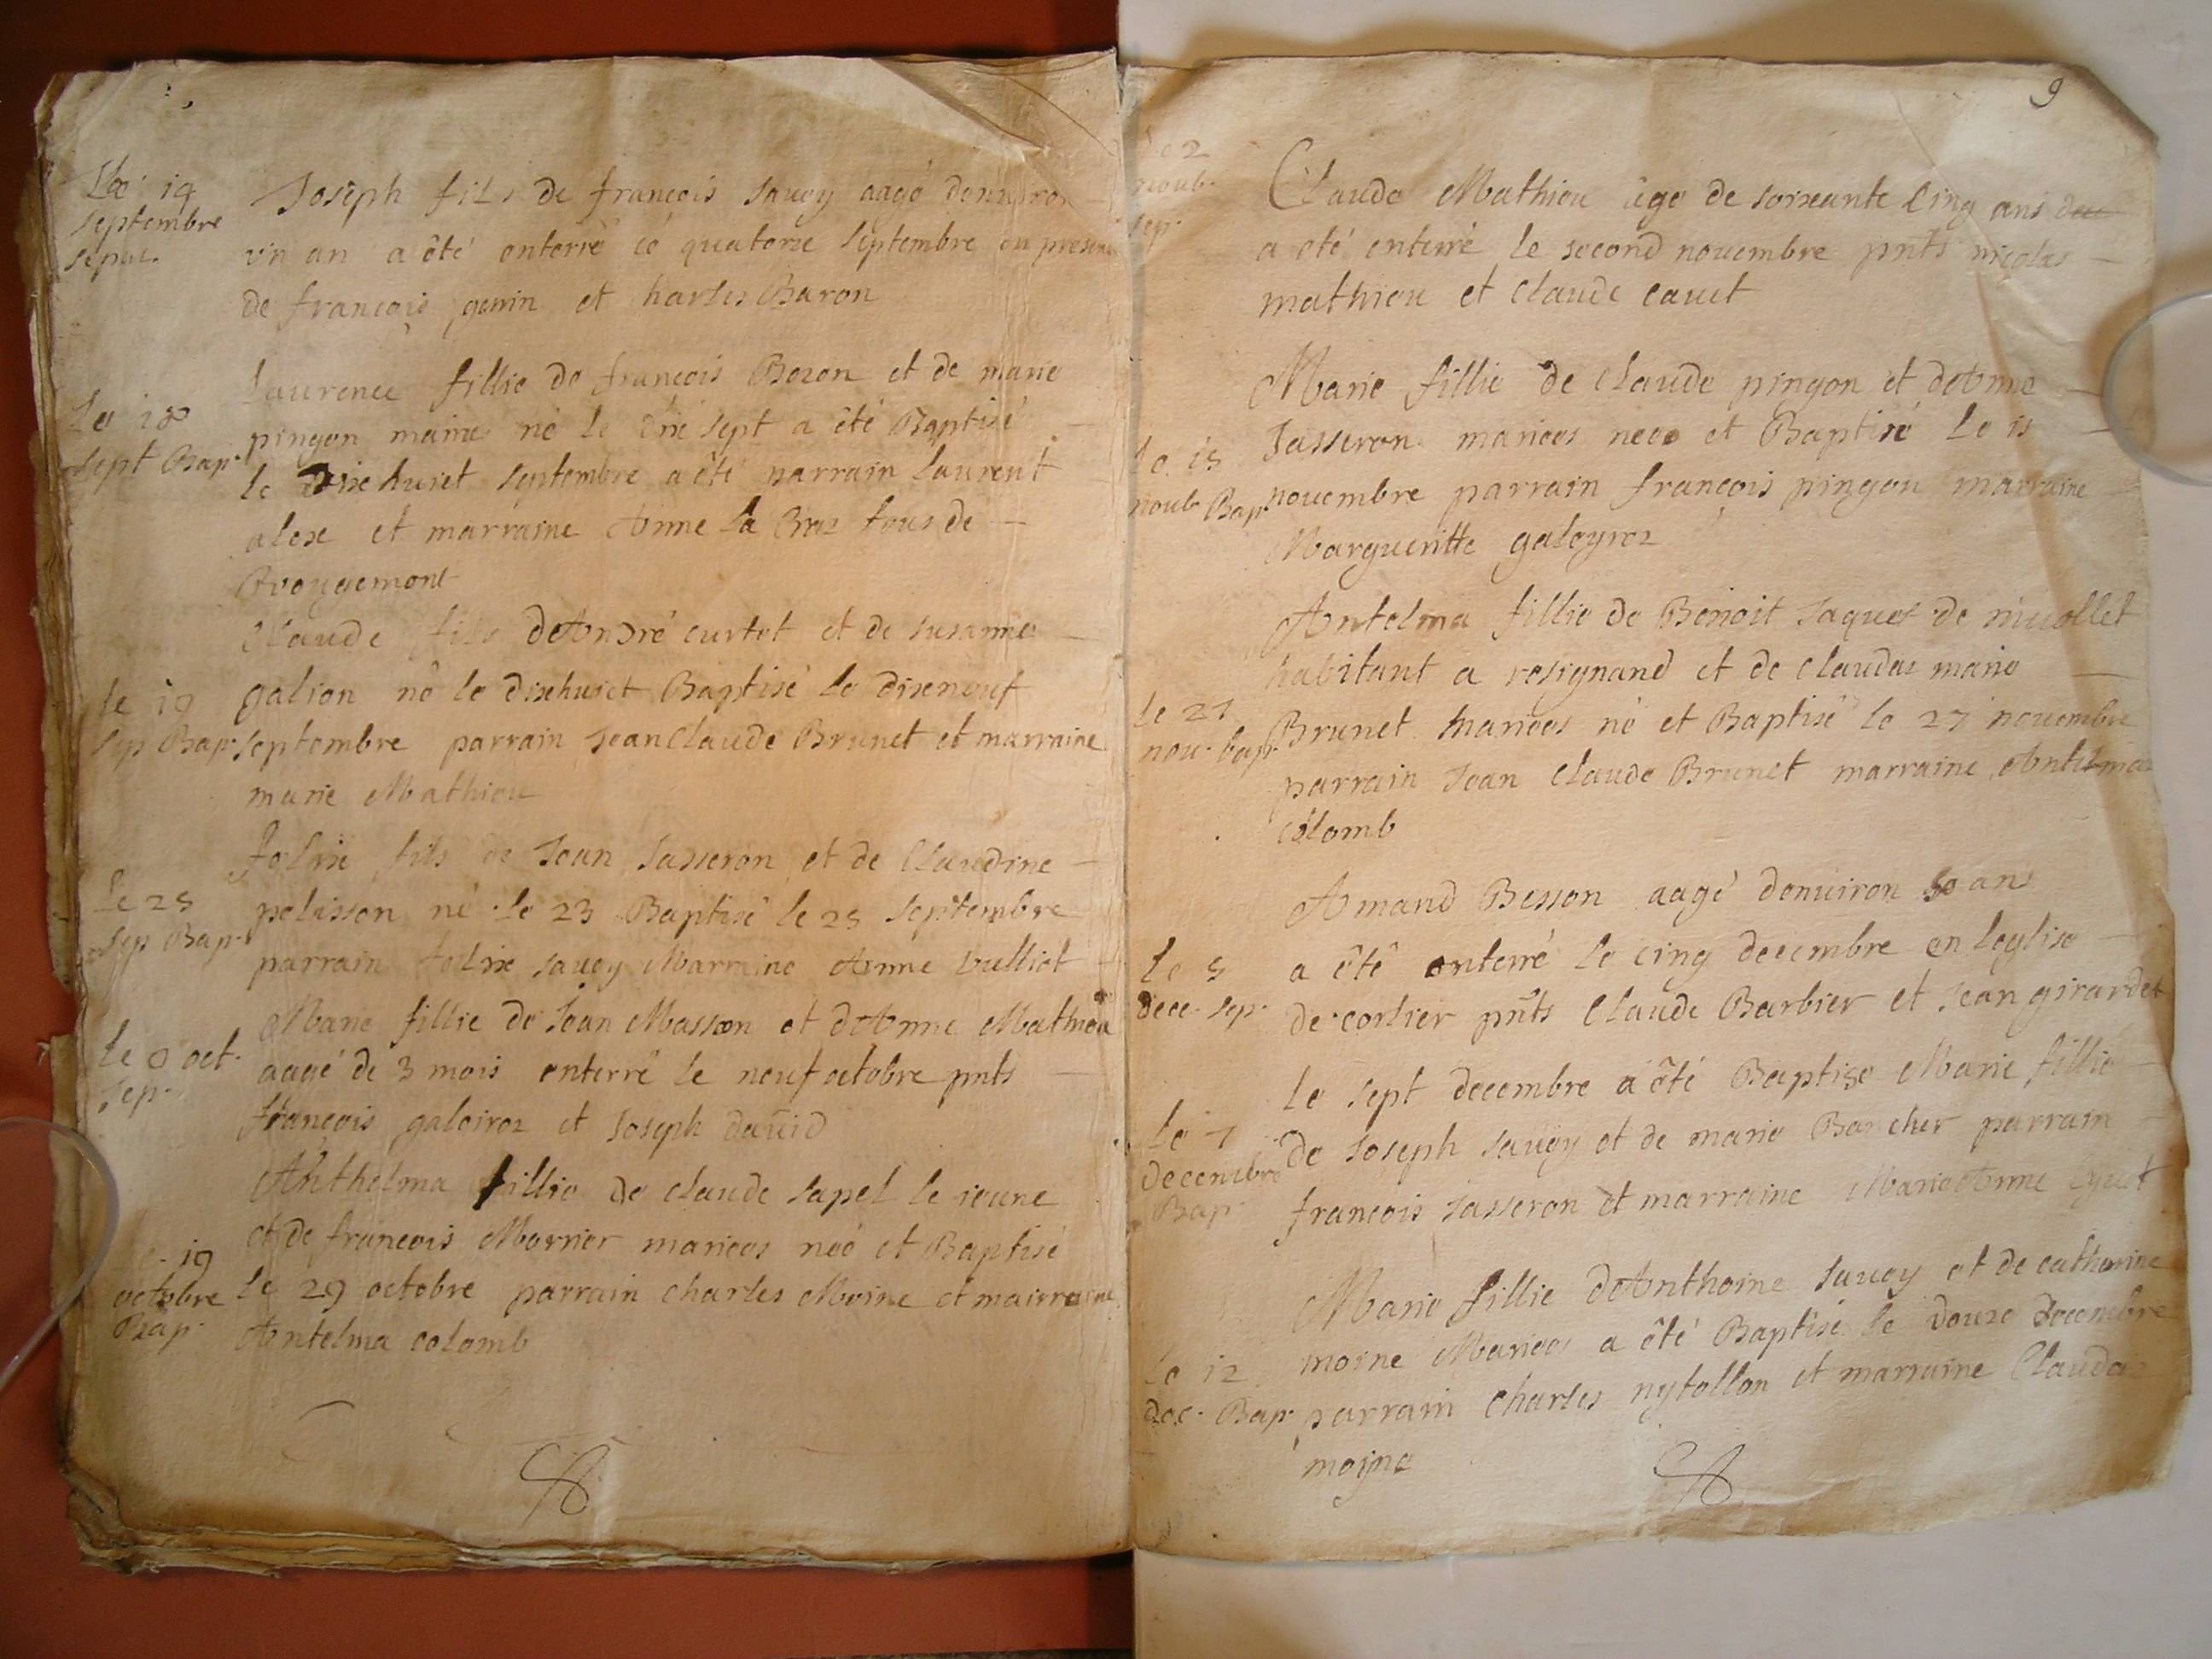 Le 14
septembre
sepul.
Joseph fils de françois savey aagé denuiron
vn an a êté enterré cé quatorze septembre en presence
de françois genin et harles Baron
Laurence fillie de françois Bozon et de marie
Le 18
sept Bap.
pingon né le sept a êté Baptisé
le dixhuict septembre a êté parrain laurent
alex et marraine Anne la tous de
Rougemont
Claude fils deAndré curtet et de susanne
le 19
sep Bap.
galion né le dixhuict Baptisé le dixneuf
septembre parrain Jean Claude Brunet et marraine
marie Mathieu
felix fils de Jean Jasseron et de Claudine
Le 25
sep Bap.
pelisson né le 23 Baptisé le 25 septembre
parrain felix savey Marraine Anne vulliet
Marie fillie de Jean Masson et deAnne Mathieu
le 9 oct.
sep.
aagé de 3 mois enterré le neuf octobre pnts
françois galeiroz et Joseph david
Anthelma fillie de claude sapel le ieune
et de françois Mornier mariees néé et Baptisé
19
octobre
Bap.
le 29 octobre parrain charles Moine et mairraine
Antelma colomb
9
2
noub.
sep.
Claude Mathieu âge de soixante Cinq ans
a eté enterré le second nouembre pnts nicolas
mathieu et Claude cauet
Marie fillie de claude pingon et deAnne
le 15
noub Bap.
Jasseron mariees neee et Baptisé le 15
nouembre parrain françois pingon marraine
Margueritte galeyroz
Antelma fillie de Benoit Jaquet de niuollet
habitant a resignand et de claudaz marie
le 27
nou. bap.
Brunet mariees né et Baptisé le 27 nouembre
parrain Jean Claude Brunet marraine Antelma
colomb
Amand Besson aagé denuiron 50 ans
Le 5
dece. sep.
a êtê enterré le cinq decembre en leglise
de corlier pnts Claude Barbier et Jean girardet
le sept decembre a êté Baptise Marie fillie
Le 7
decembre
Bap.
de Joseph savey et de marie Bancher parrain
françois Jasseron et marraine MarieAnne
Marie fillie deAnthoine savey et de catherine
Le 12
dec. Bap.
moine Mariees a êté Baptisé le douze decembre
parrain charles nytollon et marraine Claudaz
moyne